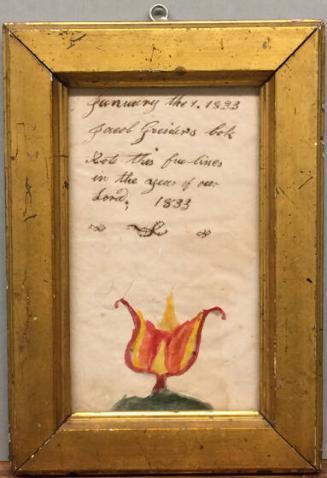 January the 1. 1833
Jacob Greiders bok
Rote this few lines
in the year of our
Lord, 1833